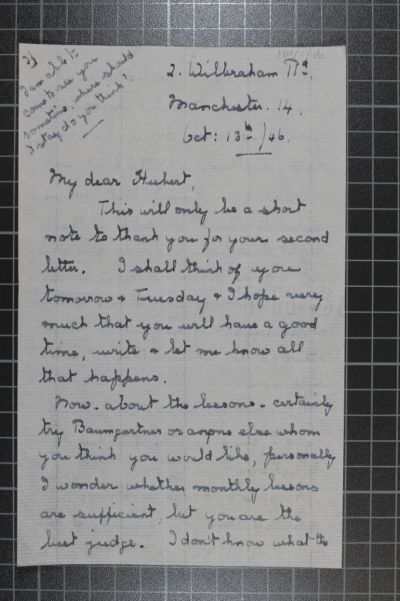 If
I am able to
come to see you
sometime, where should
I stay do you think?
2. Wilbraham Rd.
Manchester. 14.
Oct: 13th/46.
My dear Hubert,
This will only be a short
note to thank you for your second
letter. I shall think of you
tomorrow & Tuesday & I hope very
much that you will have a good
time, write & let me know all
that happens.
Now. about the lessons - certainly
try Baumgartner or anyone else whom
you think you would like, personally
I wonder whether monthly lessons
are sufficient, but you are the
best judge. I don't know what the